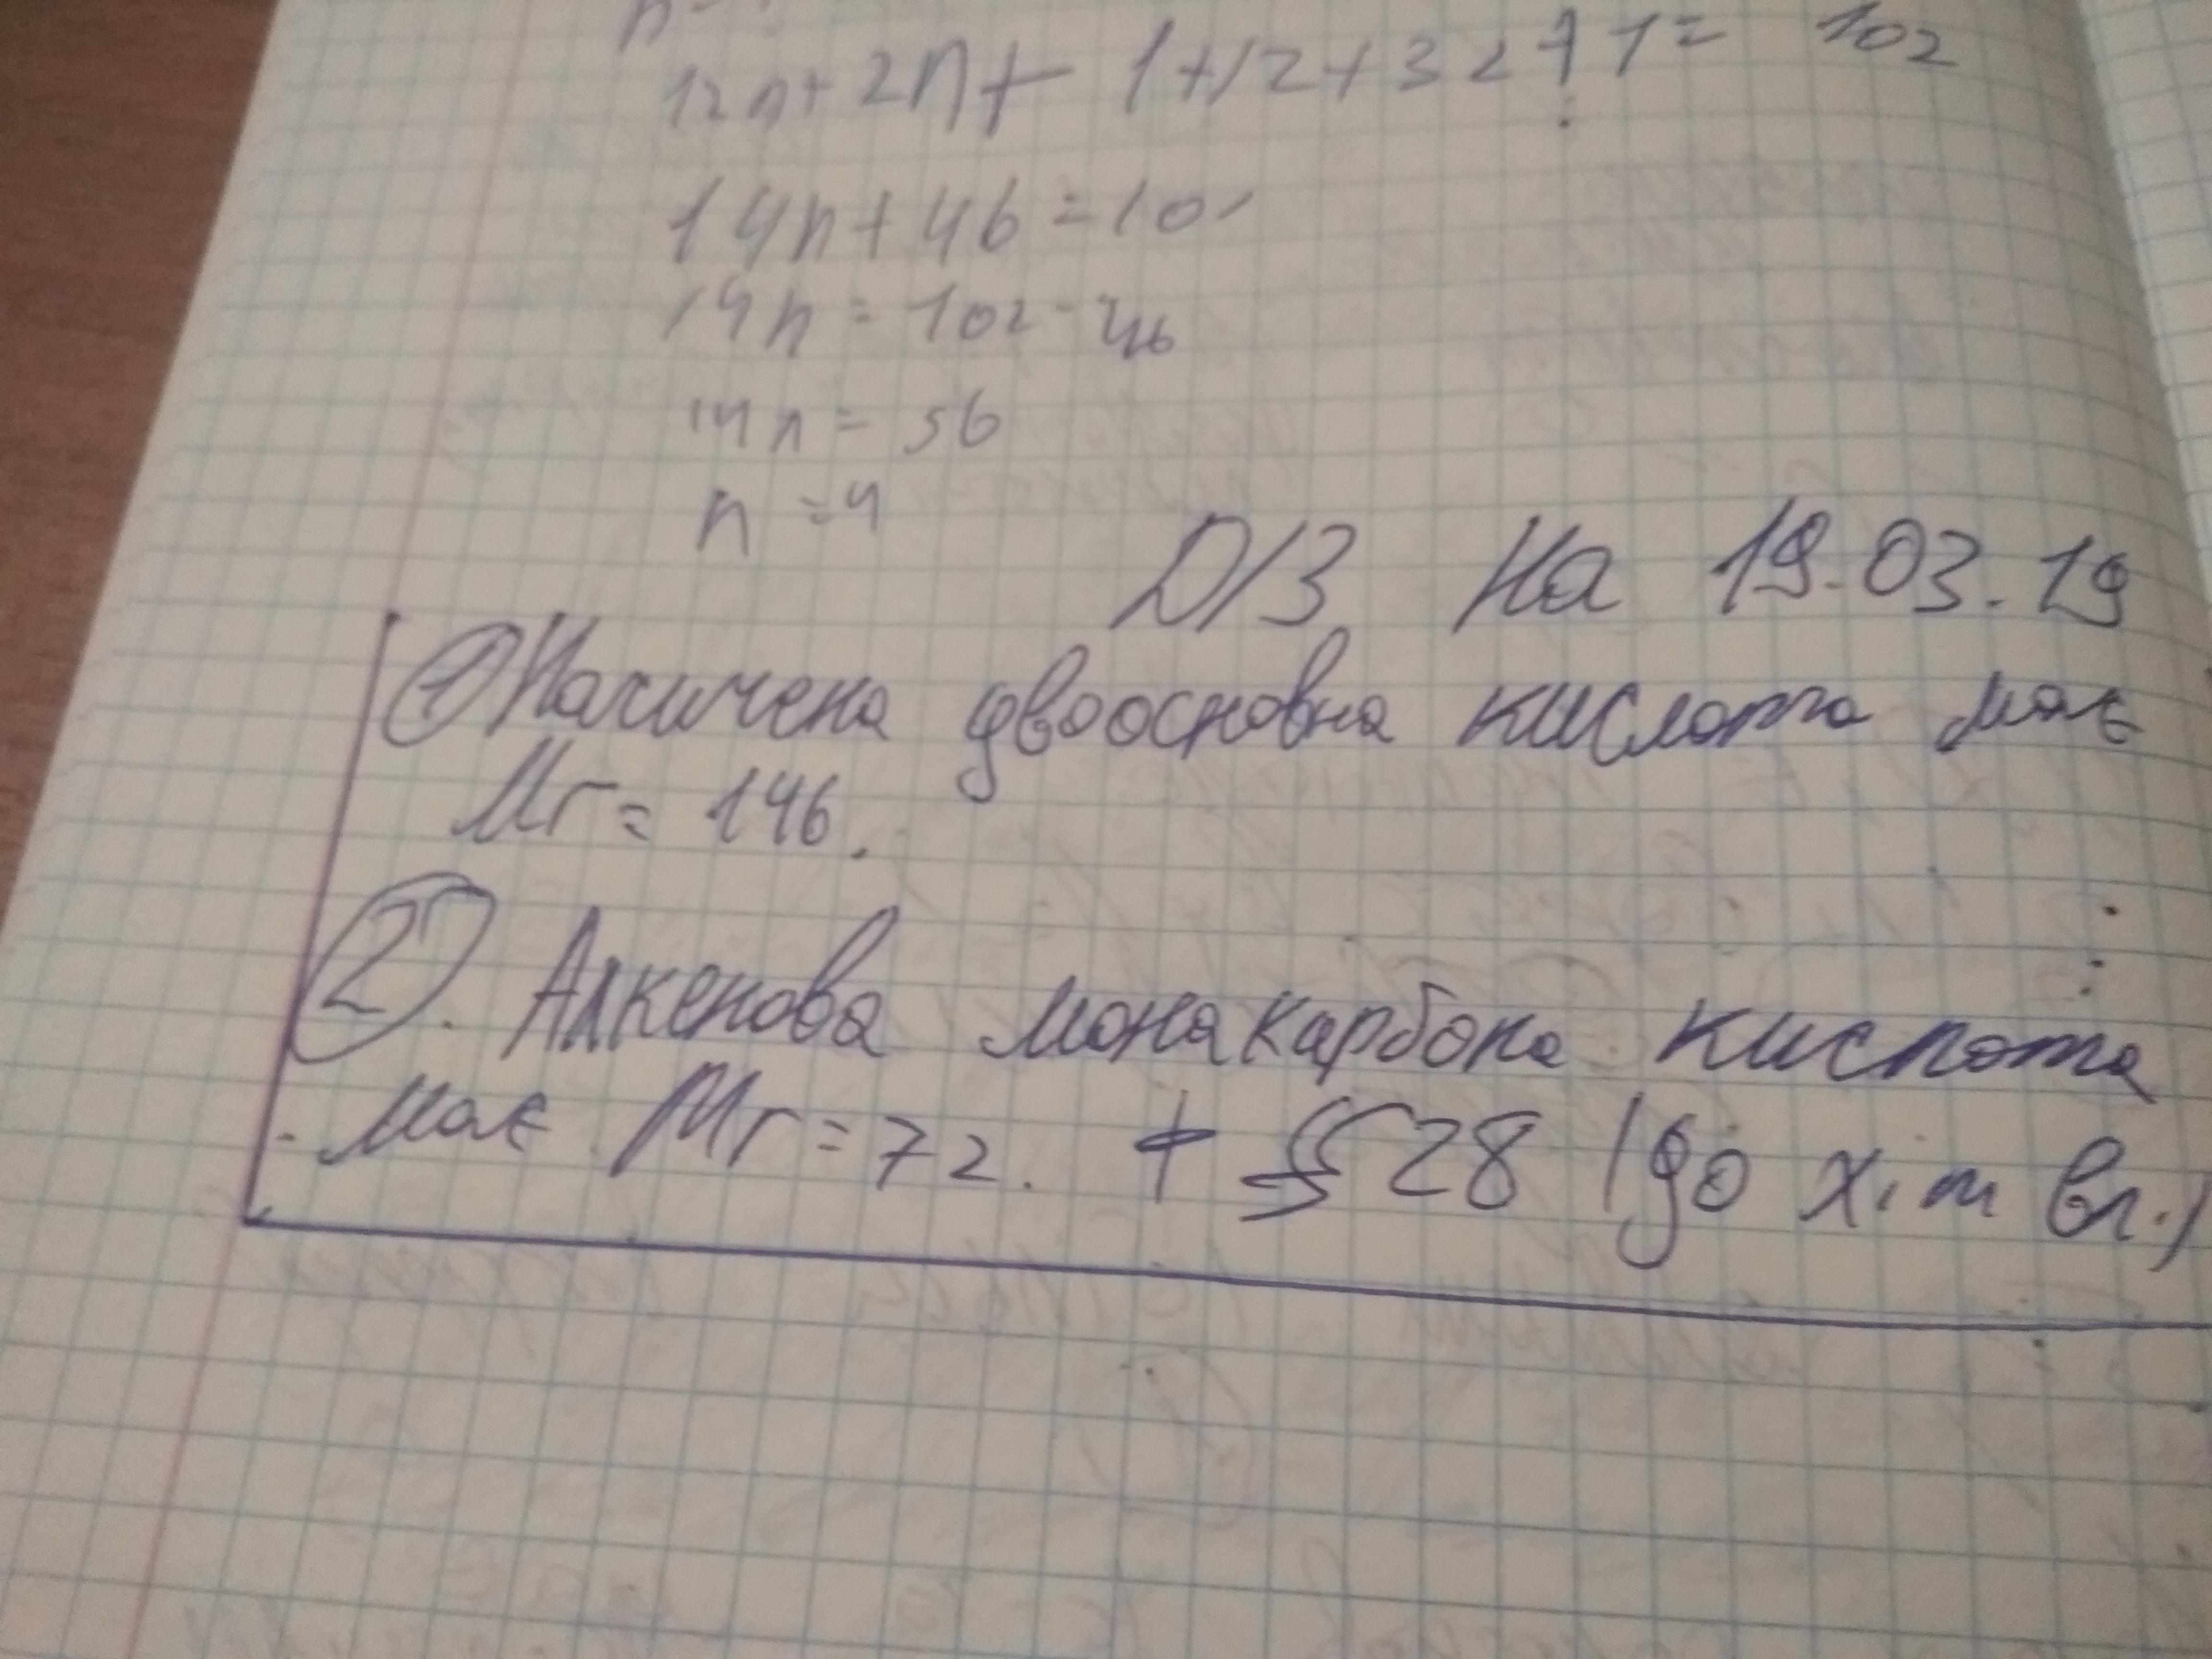 12n+2n+1+12+32+1=102
14n+46=10
14n=102-46
14n=56
n=4
Д/З На 19.03.19
① Насичена двоосновна кислота має
Mr=146.
②. Алкенова монакарбона кислота
має Mr=72. + § 28 (до хім вл.)